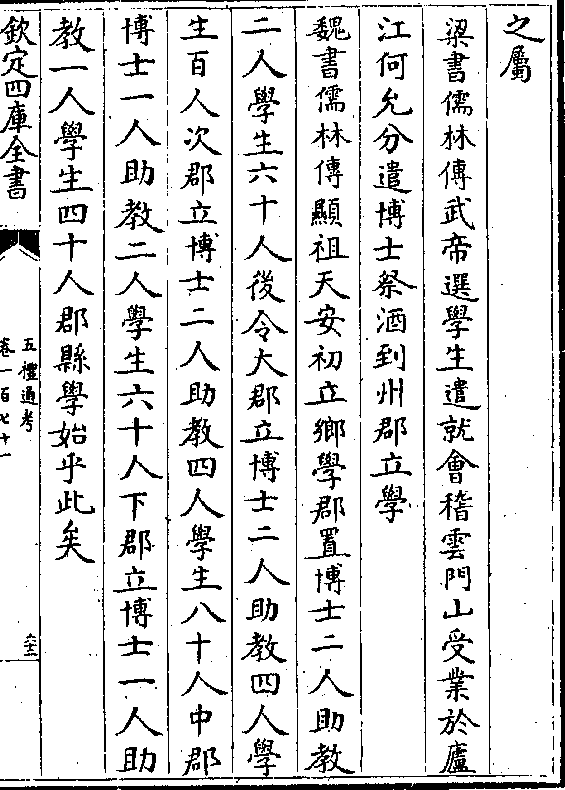 之屬
梁書儒林傳武帝選學生遣就會稽雲門山受業於廬
江何允分遣博士祭酒到州郡立學
魏書儒林傳顯祖天安初立鄉學郡置博士二人助教
二人學生六十人後令大郡立博士二人助教四人學
生百人次郡立博士二人助教四人學生八十人中郡
博士一人助教二人學生六十人下郡立博士一人助
教一人學生四十人郡縣學始乎此矣
欽定四庫全書
五禮通考
卷一百七十一